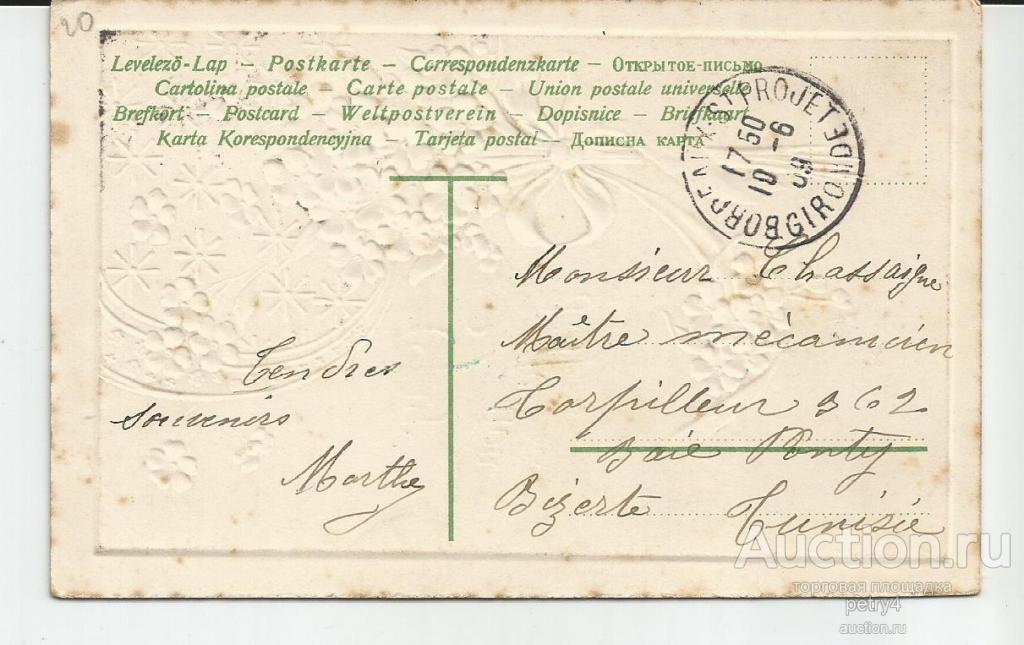 20
Levelező-Lap – Postkarte – Correspondenzkarte – Открытое-письмо
Cartolina postale – Carte postale – Union postale universelle
Brefkort – Postcard – Weltpostverein – Dopisnice – Briefkaart
Karta Korespondencyjna – Tarjeta postal – Дописна карта
BORDEAUX ST PROJET GIRONDE
17 50
10 -6
09
Monsieur Chassaigne
Maître mécanicien
Torpilleur 362
Baie Ponty
Bizerte Tunisie
Tendres
souvenirs
Marthe
Auction.ru
торговая площадка
petry4
auction.ru